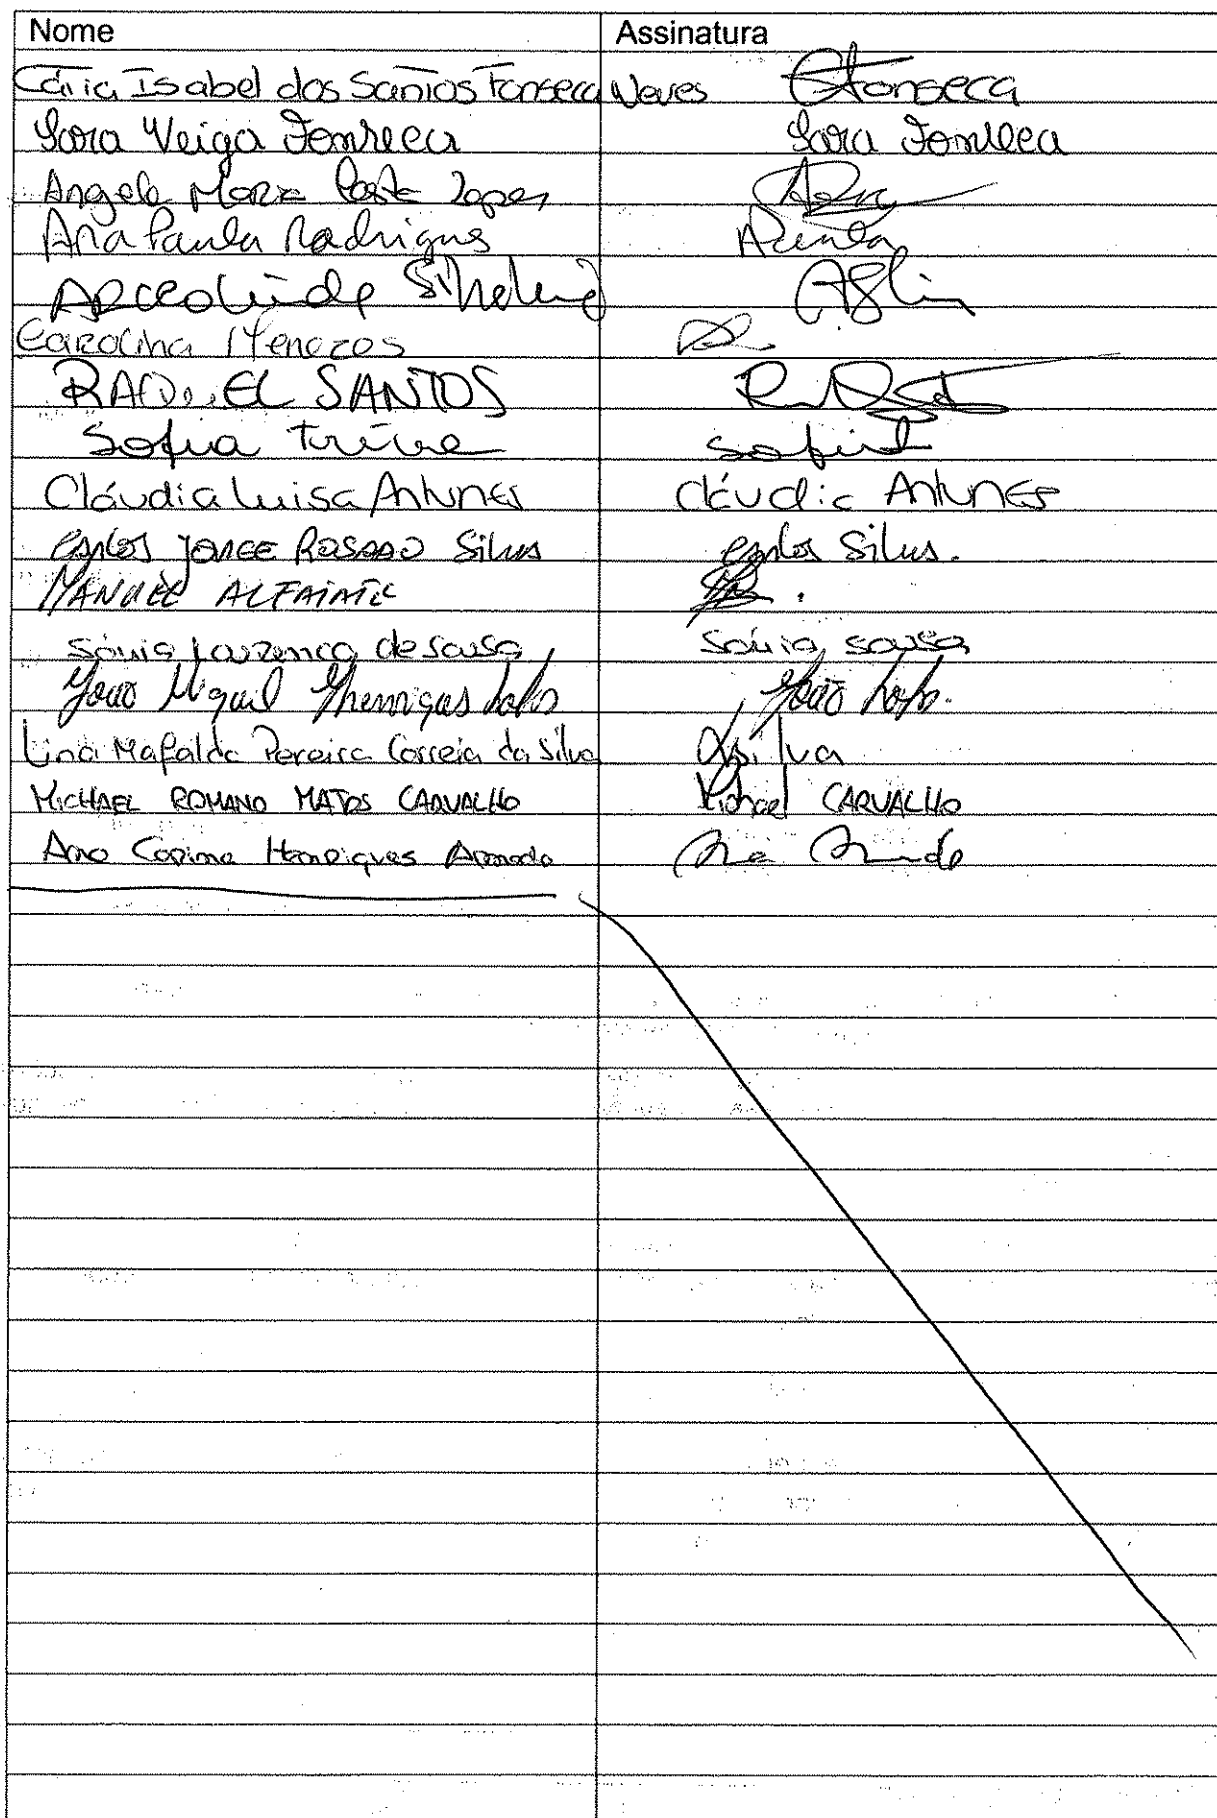 Nome Assinatura
Cátia Isabel dos Santos Fonseca Neves CFonseca
Sara Veiga Fonseca Sara Fonseca
Angela Maria Lopes
Ana Paula Rodrigues APaula
Carolina Menezes
RAQUEL SANTOS
Sofia
Cláudia Luisa Antunes Cláudia Antunes
Carlos JORGE ROSADO Silva Carlos Silva.
MANUEL ALFAIATE
Sónia Lourenço de Sousa Sónia Sousa
João Miguel João
Lina Mafalda Pereira Correia da Silva LSilva
MICHAEL ROMANO MATOS CARVALHO Michael CARVALHO
Ana Carina Henriques Ana